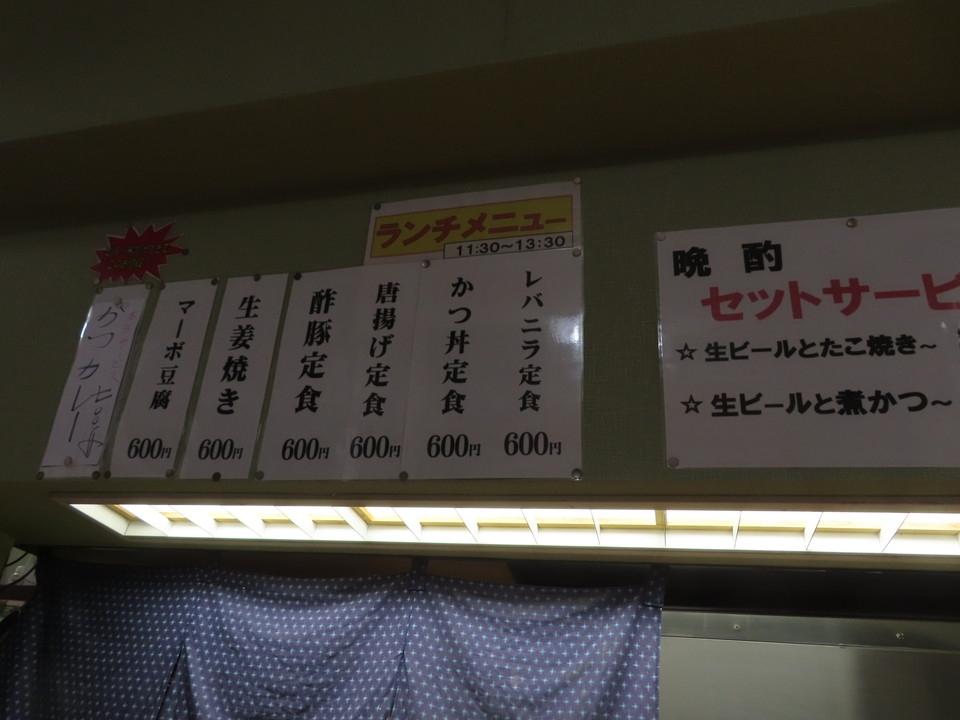 ランチメニュー
11:30~13:30
レバニラ定食
600円
かつ丼定食
600円
唐揚げ定食
600円
酢豚定食
600円
生姜焼き
600円
マーボ豆腐
600円
かつカレー
晩酌
セットサービ
☆生ビールとたこ焼き~
☆生ビールと煮かつ~